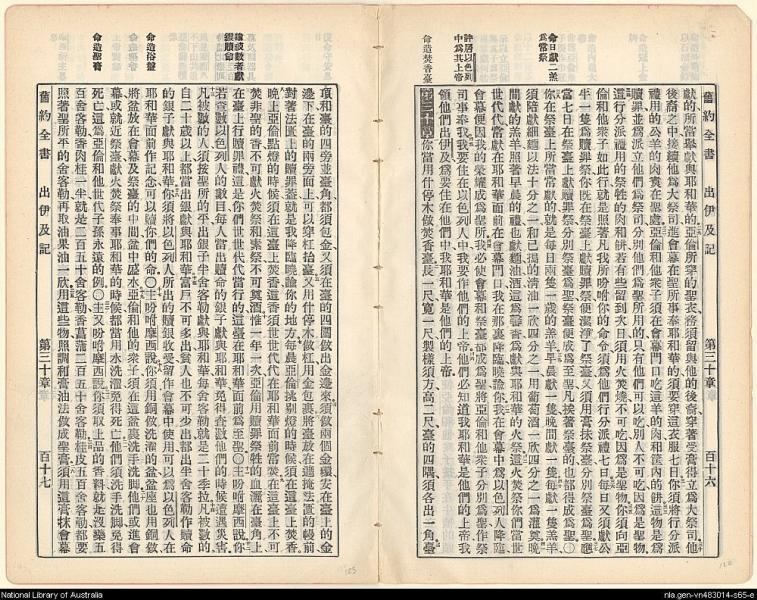 舊約全書 出伊及記 第三十章 百十六
命日獻二羔爲常祭
許居以色列中爲其上帝
命造焚香臺
獻的所當舉獻與耶和華的亞倫所穿的聖衣務須留與他的後裔穿著受膏得立爲大祭司他
後裔之中接續他爲大祭司進會幕在聖所事奉耶和華的須要穿這衣服七日你須將行分派
禮用的公羊的肉煑在聖處亞倫和他衆子須在會幕門口吃這羊的肉和筐內的餅這物是爲
贖罪並爲派他們爲祭司分別他們爲聖所用的只有他們可以吃別人不可吃因爲是聖物
這行分派禮用的祭牲的肉和餅若有些留到次日須用火焚燒不可吃因爲是聖物你須向亞
倫和他衆子如此行就是照著凡我所吩咐你的命令須爲他們行分派禮七日每日又須獻公
牛一隻爲贖罪祭你旣在祭臺上獻贖罪祭便潔淨了祭臺又須用膏抹祭臺分別祭臺爲聖
當七日在祭臺上獻贖罪祭分別祭臺爲聖祭臺便成爲至聖凡挨著祭臺的也都得成爲聖〇
你在祭臺上所當常獻的就是每日兩隻一歲的羔羊早晨獻一隻晚間獻一隻每獻一隻羔羊
須陪獻細麵以法十分之一和已搗的淸油一欣四分之一用葡萄酒一欣四分之一爲灌奠晚
間獻的羔羊照著早晨的禮也獻麵油酒這爲馨香獻與耶和華的火祭這火焚祭你們當世
世代代常獻在耶和華面前在會幕門口我在那裏降臨曉諭你我在會幕中就以色列人降臨
會幕便因我的榮耀成爲聖所我必使會幕和祭臺都成爲聖將亞倫和他衆子分別爲聖作祭
司事奉我我要住在以色列人中我要作他們的上帝他們必知道我耶和華是他們的上帝我
領他們出伊及爲要住在他們中我耶和華是他們的上帝
第三十章 你當用什停木做焚香臺長一尺寬一尺製樣須方高二尺臺的四隅須各出一角臺
舊約全書 出伊及記 第三十章 百十七
命造浴盤
命造聖膏
頂和臺的四旁並臺角都須包金又須在臺的四圍做出金邊來須做兩個金環安在臺上的金
邊下在臺的兩旁面上可以穿杠抬臺又用什停木做杠用金包裹將臺放在遮掩法匱的幔前
對著法匱上的贖罪蓋就是我降臨曉諭你的地方每晨亞倫挑剔燈的時候須在這臺上焚香
晚上亞倫點燈的時候須在這臺上焚香這香須世世代代在耶和華面前常焚在這臺上不可
焚非聖的香不可獻火焚祭和素祭不可奠酒惟一年一次亞倫用贖罪祭牲的血灑在臺角上
在臺上行贖罪禮這是你們世世代代當行的這臺在耶和華面前爲至聖〇主吩咐摩西說你
若查數以色列人的數目每人當出贖命的銀子獻與耶和華免得查數他們的時候遭遇災害
凡被數的人須按聖所的平出銀子半舍客勒獻與耶和華每舍客勒就是二十季拉凡被數的
自二十歲以上都當出銀獻與耶和華富戶不可多出貧人也不可少出都出半舍客勒作贖命
的銀子獻與耶和華你須將以色列人所出的贖銀收受留作會幕中使用可以爲以色列人在
耶和華面前作記念可以贖你們的命〇主吩咐摩西說你須用銅做洗濯的盆盆座也用銅做
將盆放在會幕及祭臺的中間盆中盛水亞倫和他的衆子須在這盆裏洗手洗脚他們或進會
幕或就近祭臺獻火焚祭奉事耶和華的時候都當用水洗濯免得死亡他們須洗手洗脚免得
死亡這爲亞倫和他世代子孫永遠的例〇主又吩咐摩西說你須取上品的香料就是沒藥五
百舍客勒香肉桂一半就是二百五十舍客勒香菖蒲二百五十舍客勒桂皮五百舍客勒都要
照著聖所平的舍客勒再取油果油一欣用這些物照調和膏油法做成聖膏須用這膏抹會幕
National Library of Australia
nla.gen-vn483014-s65-e